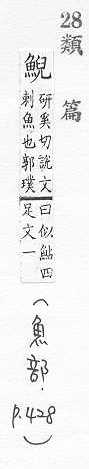 28 類篇
鯢
研奚切説文
刺魚也郭璞
曰似鮎四
足文一
(魚部. p.428)